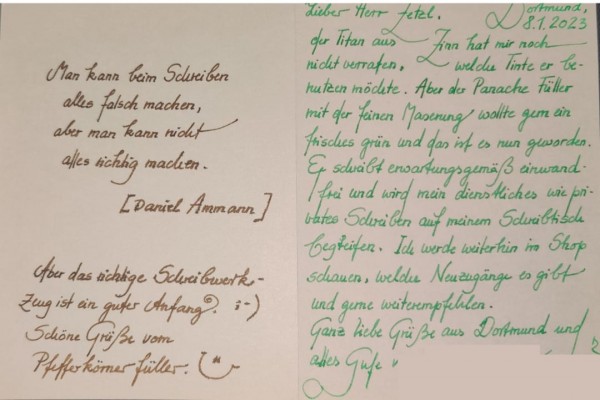 Man kann beim Schreiben
alles falsch machen,
aber man kann nicht
alles richtig machen.
[Daniel Ammann]
Aber das richtige Schreibwerk-
zeug ist ein guter Anfang. ;-)
Schöne Grüße vom
Pfefferkörner füller.
Lieber Herr Fetzl. Dortmund,
8.1.2023
der Titan aus Zinn hat mir noch
nicht verraten, welche Tinte er be-
nutzen möchte. Aber der Panache Füller
mit der feinen Maserung wollte gern ein
frisches grün und das ist es nun geworden.
Er schreibt erwartungsgemäß einwand-
frei und wird mein dienstliches wie pri-
vates Schreiben auf meinem Schreibtisch
begleiten. Ich werde weiterhin im Shop
schauen, welche Neuzugänge es gibt
und gerne weiterempfehlen.
Ganz liebe Grüße aus Dortmund und
alles Gute